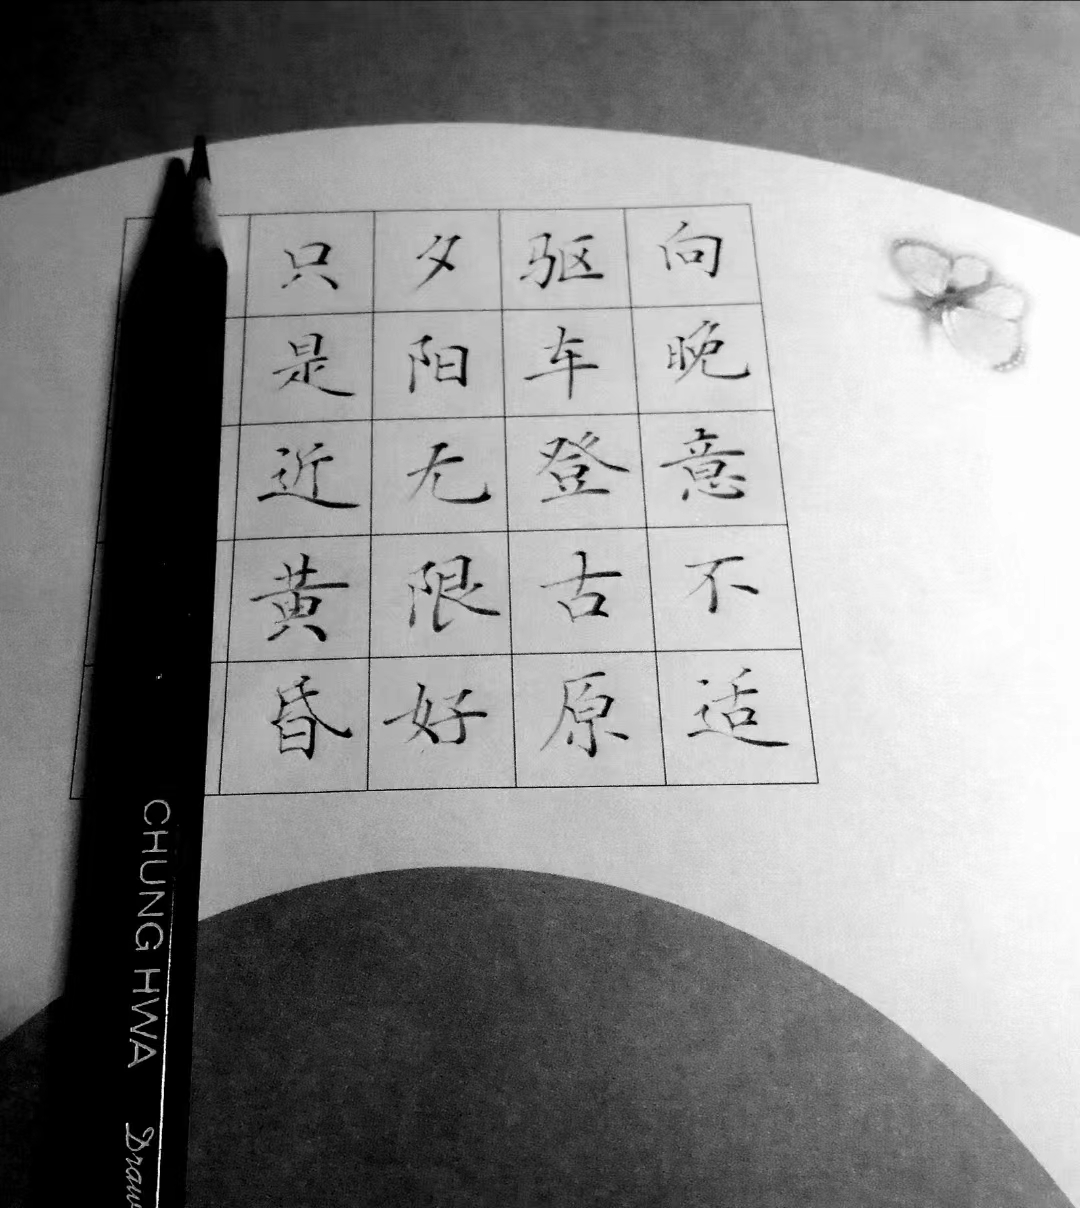 向晚意不适
驱车登古原
夕阳无限好
只是近黄昏
CHUNG HWA